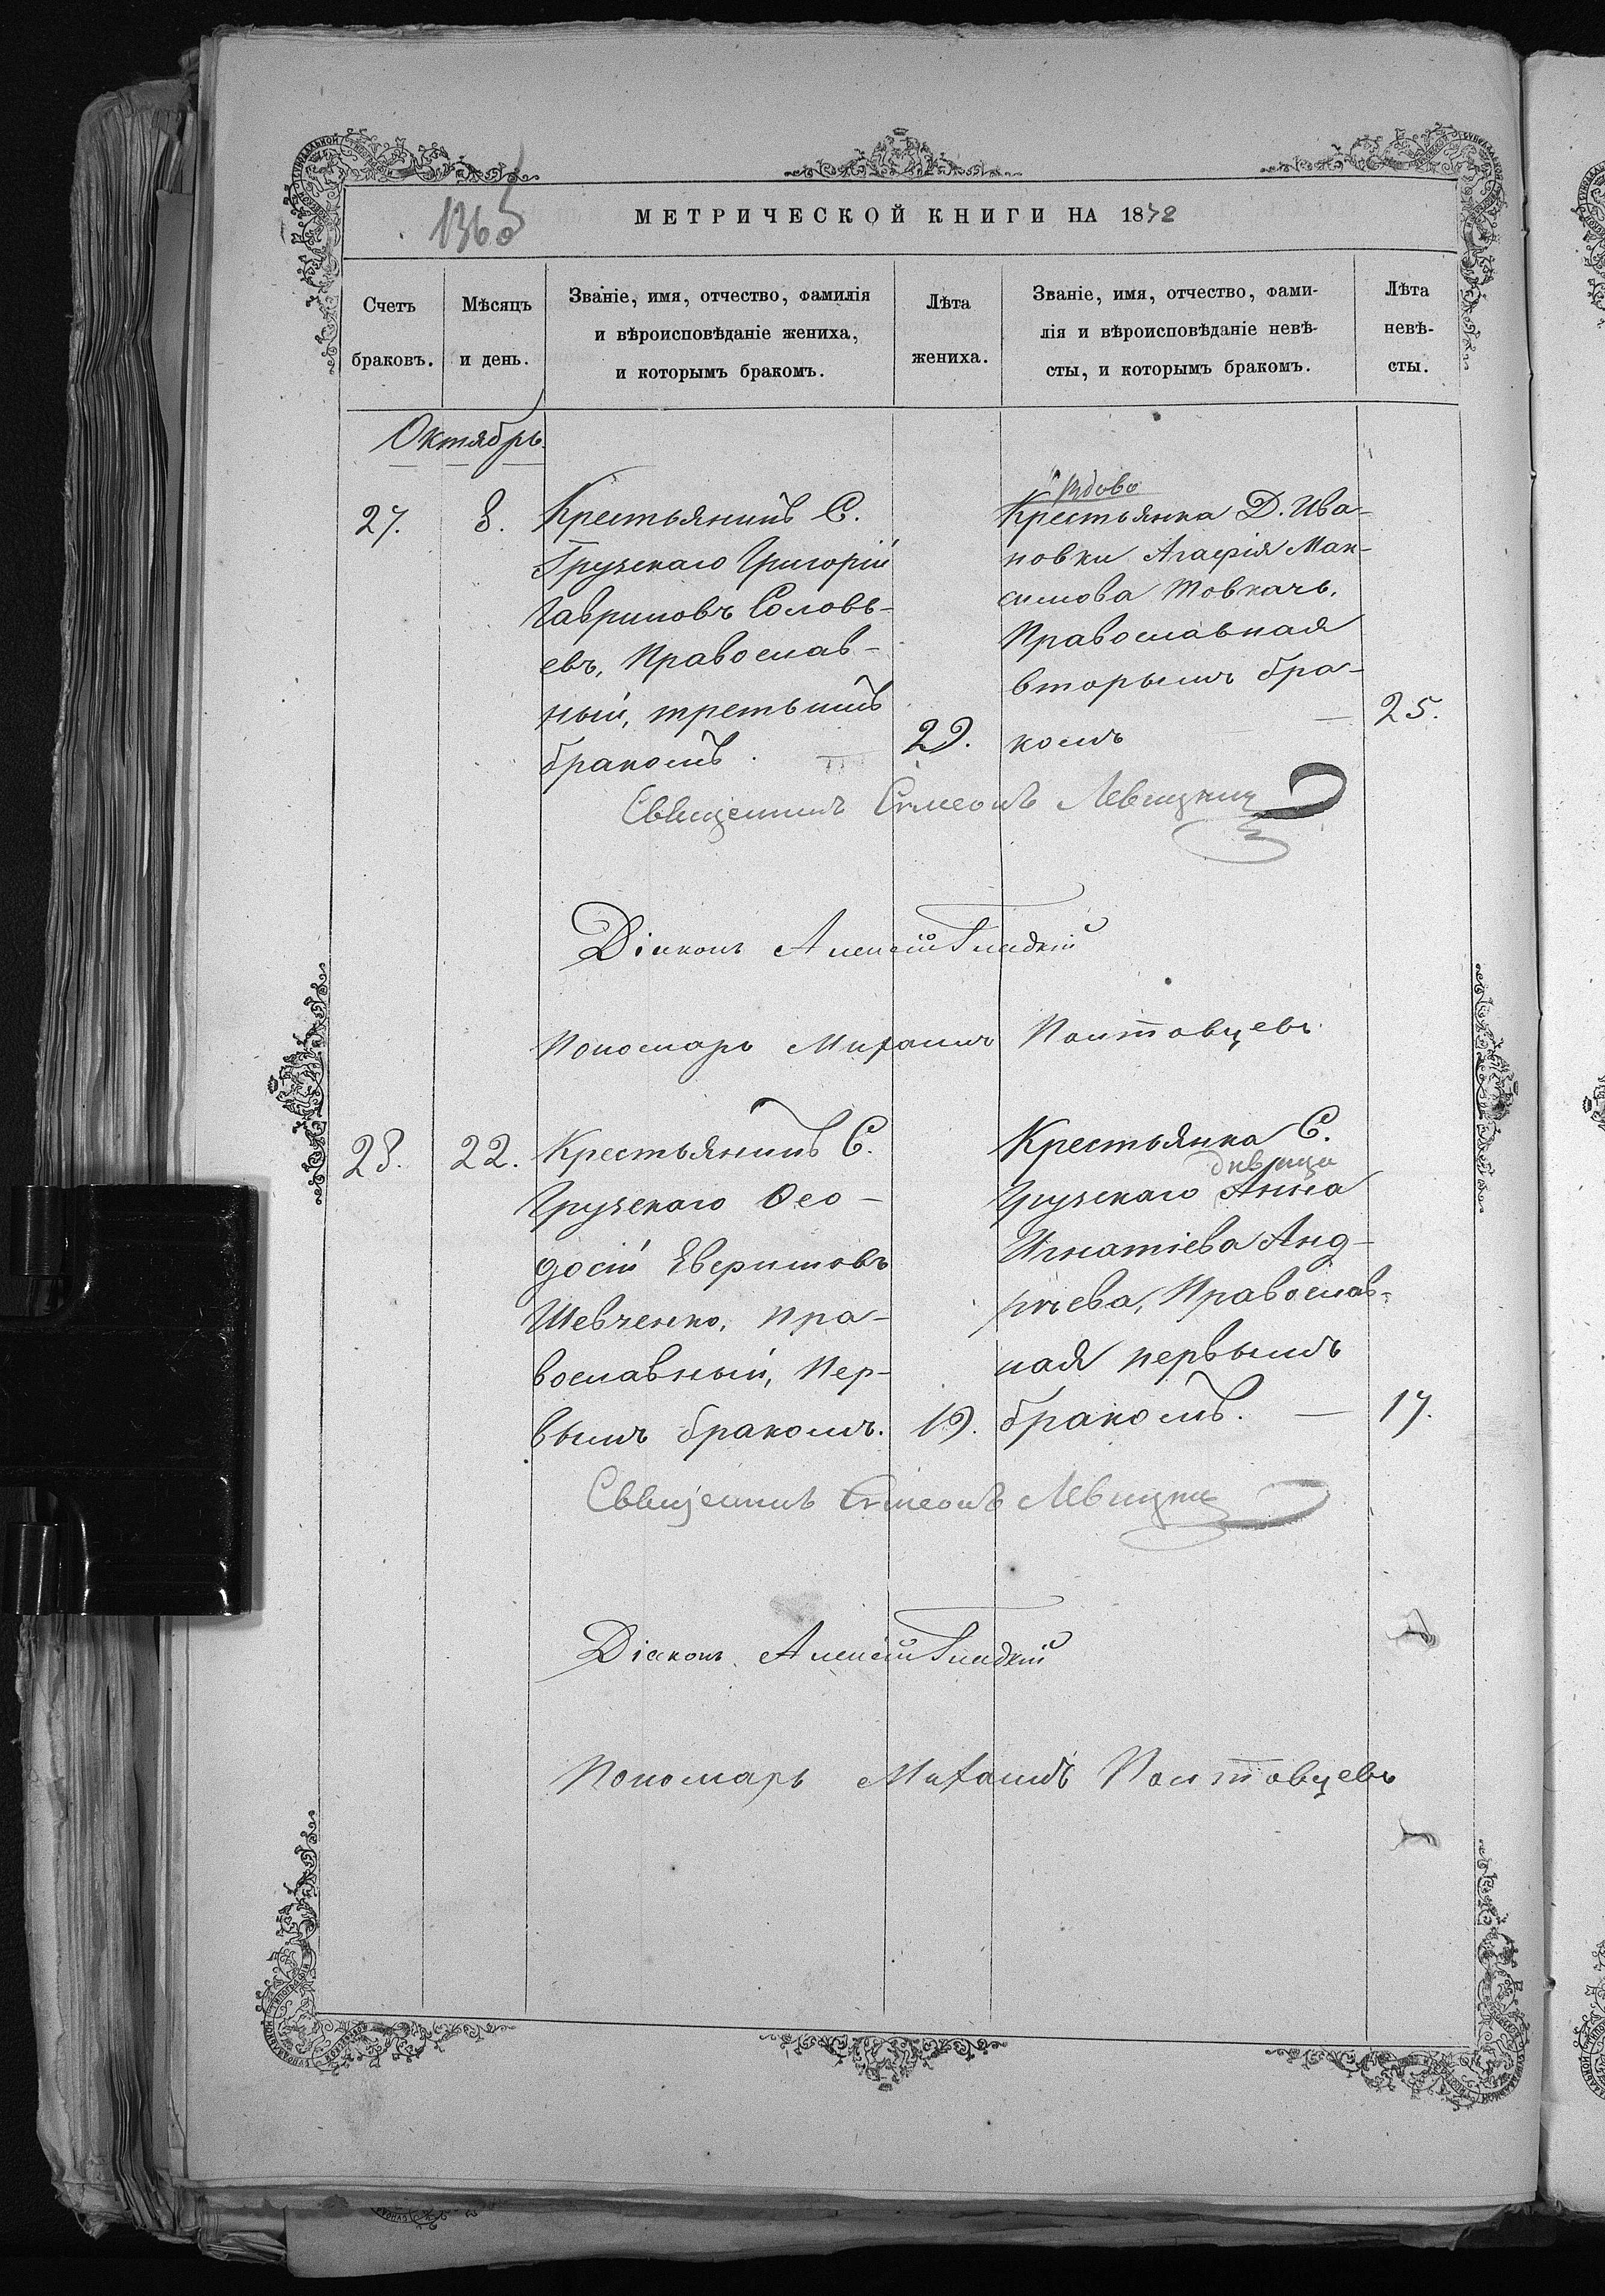 136об
МЕТРИЧЕСКОЙ КНИГИ НА 1872
Счетъ браковъ.
Мѣсяцъ и день.
Званіе, имя, отчество, фамилія
и вѣроисповѣданіе жениха,
и которымъ бракомъ.
Лѣта жениха.
Званіе, имя, отчество, фами-
лія и вѣроисповѣданіе невѣ-
сты, и которымъ бракомъ.
Лѣта невѣ-сты.
Октябрь.
27.
8.
Крестьянинъ С.
Грузскаго Григорій
Гавриловъ Соловь-
евъ, Православ-
ный, третьимъ
бракомъ.
29.
вдова
Крестьянка Д. Ива-
новки Агафія Мак-
симова Товкачь,
Православная
вторымъ бра-
комъ
25.
Священникъ Симеонъ Левицкій
Діаконъ Алексій Гладкій
Пономарь Михаилъ Полтавцевъ
28.
22.
Крестьянинъ С.
Грузскаго Ѳео-
досій Еверитовъ
Шевченко, Пра-
вославный, Пер-
вымъ бракомъ.
19.
Крестьянка С.
дѣвица
Грузскаго Анна
Игнатіева Анд-
рѣева, Православ-
ная первымъ
бракомъ.
17.
Священникъ Симеонъ Левицкій
Діаконъ Алексій Гладкій
Пономарь Михаилъ Полтавцевъ